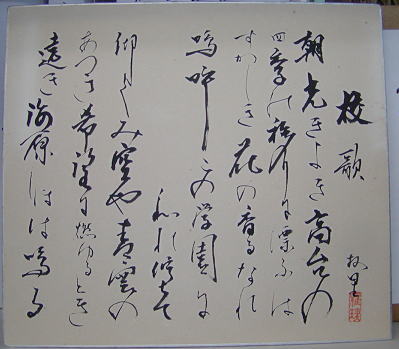 校歌
朝光きよき高台の
四季の移りに漂ふは
すがしき花の香るなれ
嗚呼この学園に
われ
仰ぐみ空や青雲の
あつき希望に燃ゆるとき
遠き海原しほは鳴る